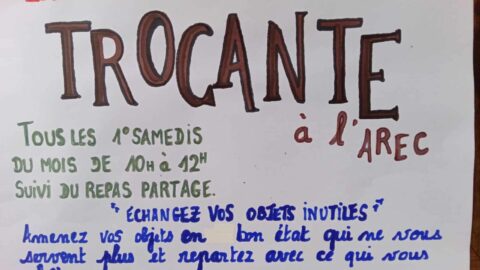 TROCANTE
à l'AREC
TOUS LES 1° SAMEDIS
DU MOIS DE 10H à 12H
SUIVI DU REPAS PARTAGE.
"ÉCHANGEZ VOS OBJETS INUTILES"
Amenez vos objets en bon état qui ne vous
servent plus et repartez avec ce qui vous